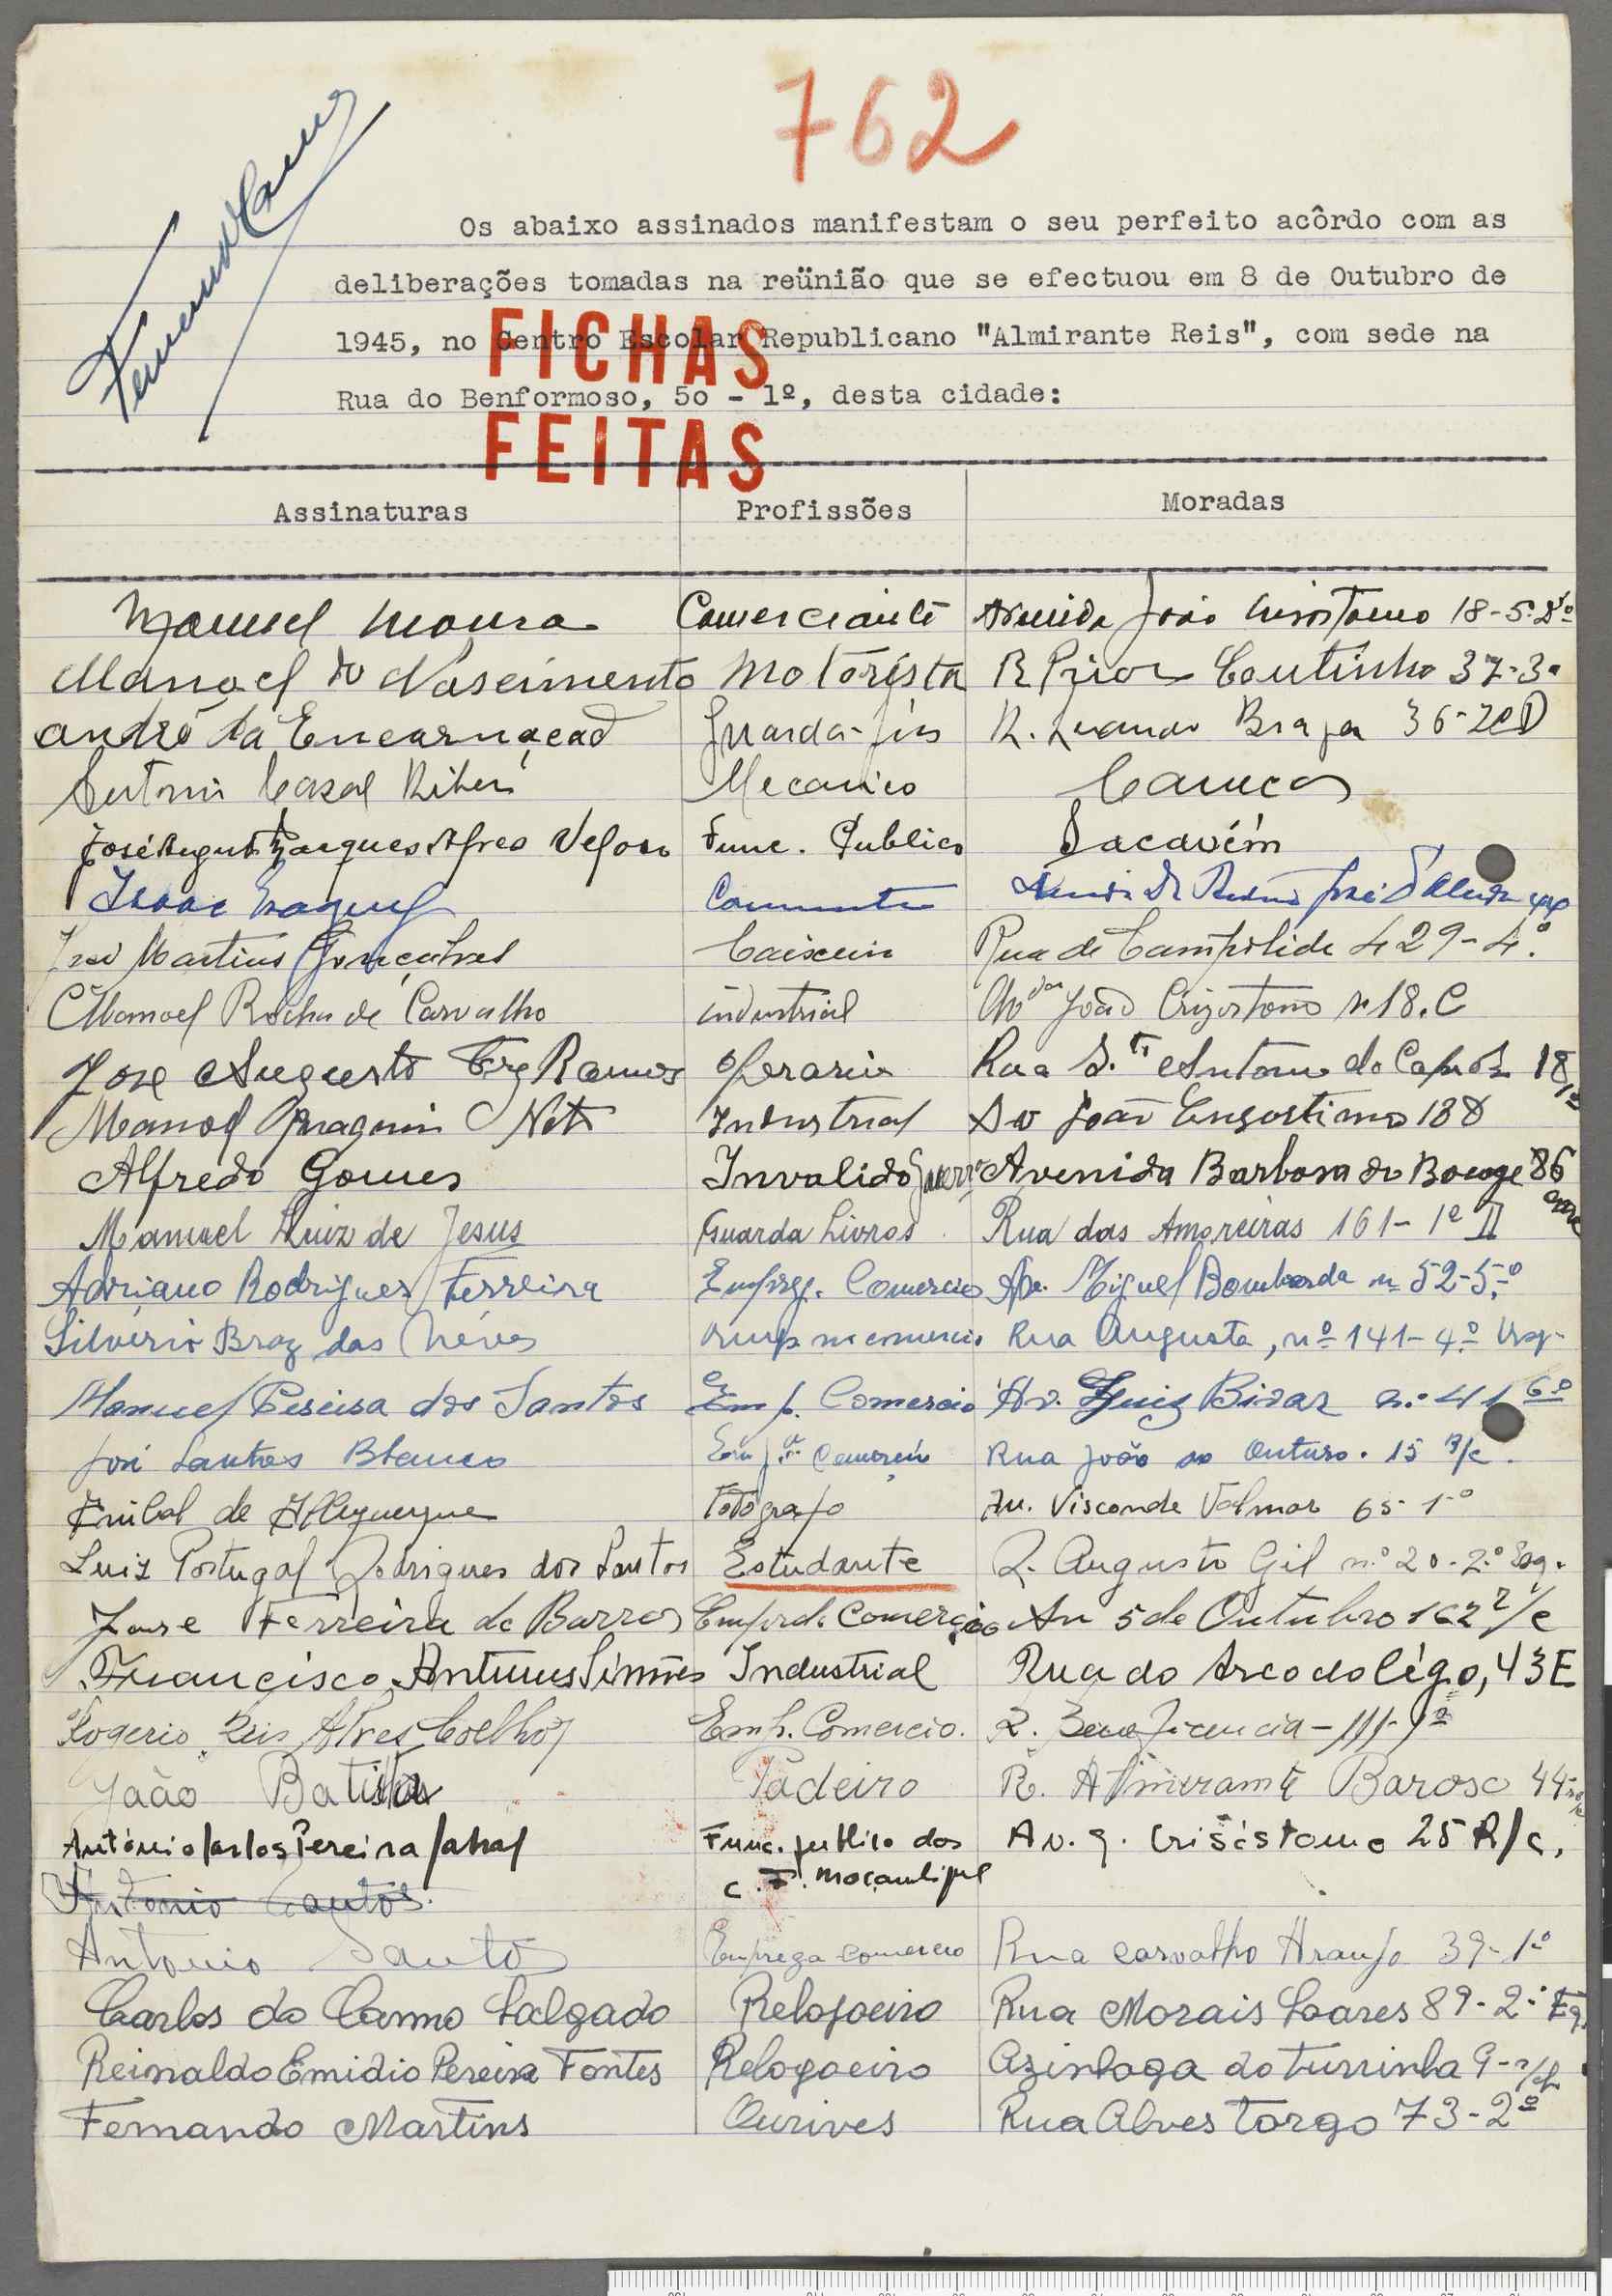 762
Os abaixo assinados manifestam o seu perfeito acôrdo com as
deliberações tomadas na reünião que se efectuou em 8 de Outubro de
1945, no Centro Escolar Republicano "Almirante Reis", com sede na
Rua do Benformoso, 50 - 1º, desta cidade:
FICHAS
FEITAS
Assinaturas Profissões Moradas
Manuel Moura Comerciante Avenida João Crisostomo 18-5-Dto
Manoel do Nascimento Motorista R Prior Coutinho 37-3º
André da Encarnação Guarda-fios R. Braga 36-2º D
Casal Mecanico
José Augusto Marques Veloso Func. Publico Sacavém
Isaac
José Martins Gonçalves Caixeiro Rua de Campolide 429-4º.
Manoel Rocha de Carvalho industrial Joao Crizostomo nº 18.C
Jose Augusto Ramos Operario Rua S.to Antonio do 18
Manoel Joaquim Neto Industrial Av João 18 D
Alfredo Gomes Invalido Guerra Avenida Barbosa do Bocage 86
Manuel Luiz de Jesus Guarda Livros Rua das Amoreiras 161-1º D
Adriano Rodrigues Ferreira Empreg. Comercio Av. Miguel Bombarda nº 52-5.º
Silvério Braz das Néves emp. no comercio Rua Augusta, nº 141-4.º Esq.
Manuel Pereira dos Santos Emp. Comercio Av. Luiz Bivar n.º 41 6º
José Santos Branco Comercio Rua João do Outeiro. 15 R/c.
Anibal de Albuquerque Fotografo Av. Visconde Valmor 65-1º
Luiz Portugal Rodrigues dos Santos Estudante R. Augusto Gil n.º 20-2.º Esq.
Jose Ferreira de Barros Comercio Av 5 de Outubro 162 r/c
Francisco Antunes Simões Industrial Rua do Arco do Cégo, 43E
Rogerio Reis Alves Coelho Emp. Comercio. R. Beneficencia-111-1º
João Batista Padeiro R. Almirante Baroso 44
António Carlos Pereira Cabral Func. publico dos Av. J. Crisóstomo 25 R/c.
C. F. Moçambique
Antonio Santos.
Antonio Santos Emprega comercio Rua Carvalho Araujo 39-1º
Carlos do Carmo Salgado Relojoeiro Rua Morais Soares 89-2.º Eq.
Reinaldo Emidio Pereira Fontes Relogoeiro Azinhaga do Turrinha 9-r/ch
Fernando Martins Ourives Rua Alves Torgo 73-2º